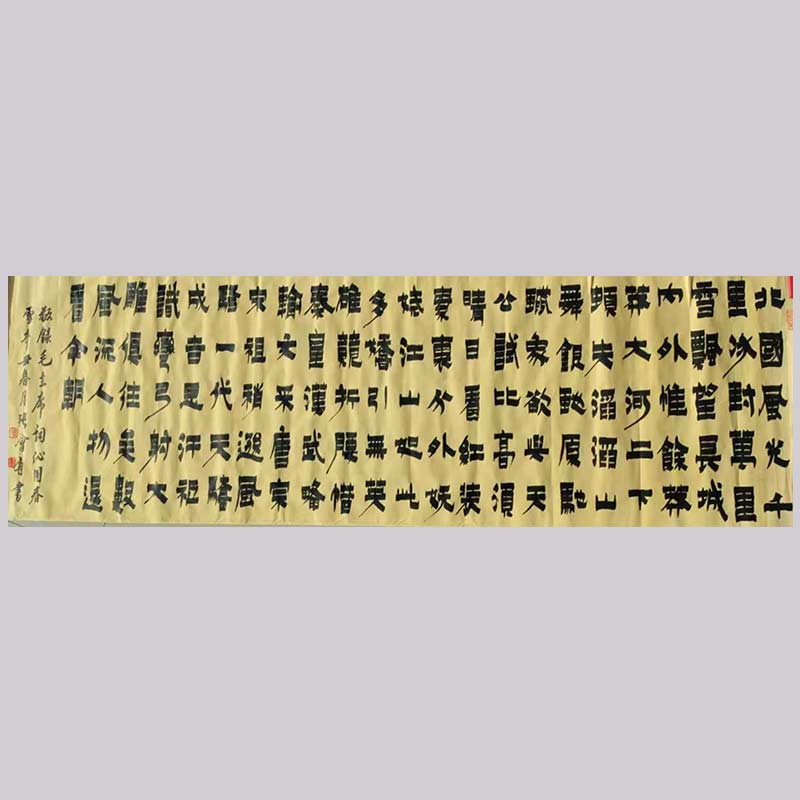 北國風光千
里冰封萬里
雪飄望長城
內外惟餘莽
莽大河上下
頓失滔滔山
舞銀蛇原馳
蠟象欲與天
公試比高須
晴日看紅裝
素裹分外妖
嬈江山如此
多嬌引無英
雄競折腰惜
秦皇漢武略
輸文采唐宗
宋祖稍遜風
騷一代天驕
成吉思汗祗
識彎弓射大
雕俱往矣數
風流人物還
看今朝
敬錄毛主席詞沁園春
雪辛丑春月張書